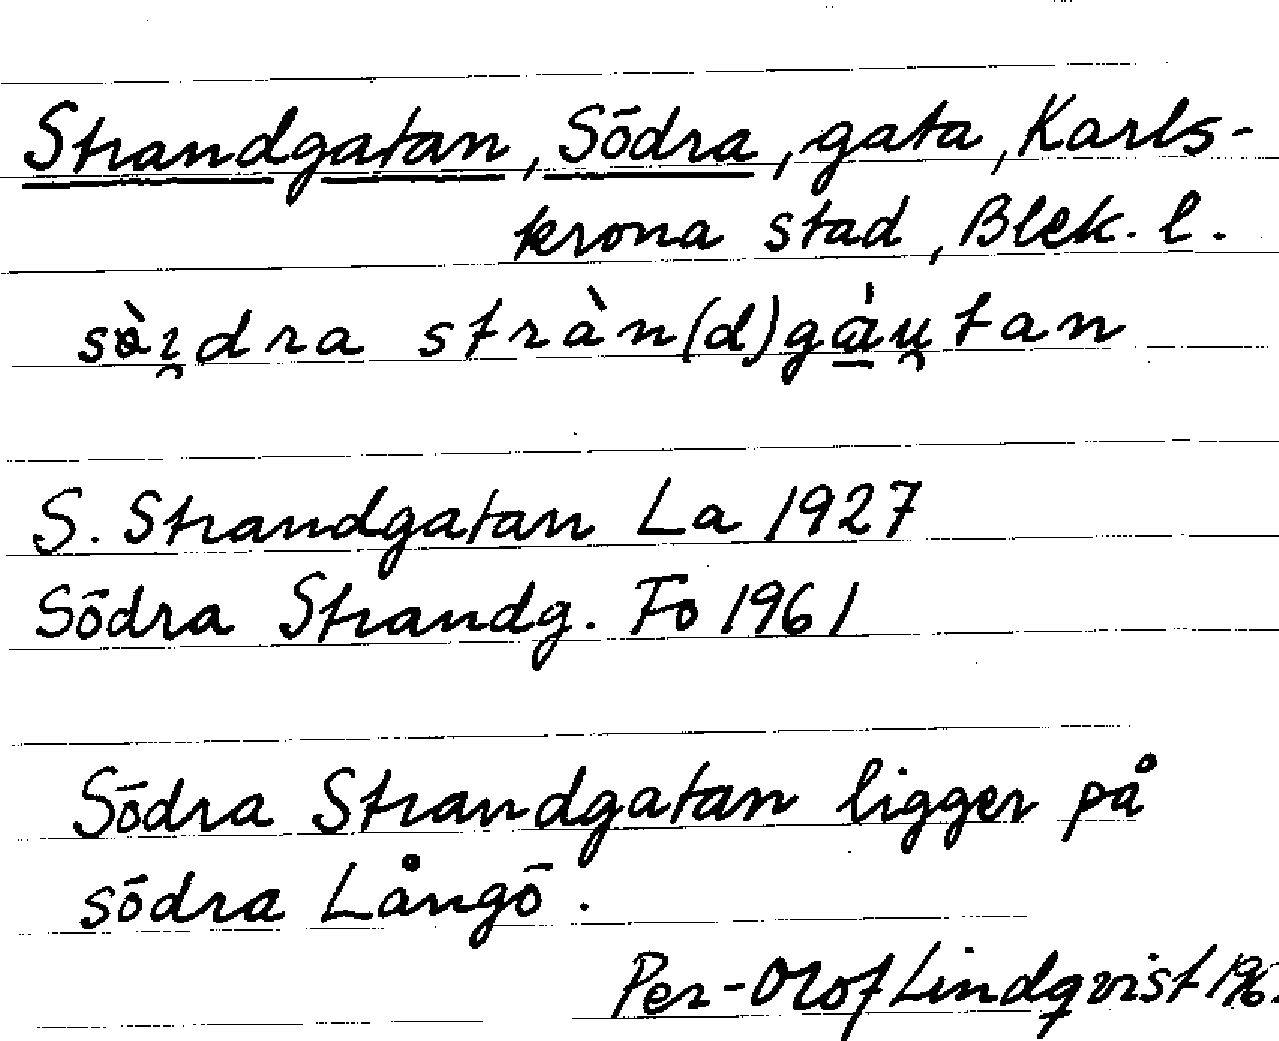 Strandgatan, Södra, gata, Karls-
krona stad, Blek. l.
stràn(d)
S. Strandgatan La 1927
Södra Strandg. Fo 1961
Södra Strandgatan ligger på
södra Långö.
Per-Olof Lindqvist